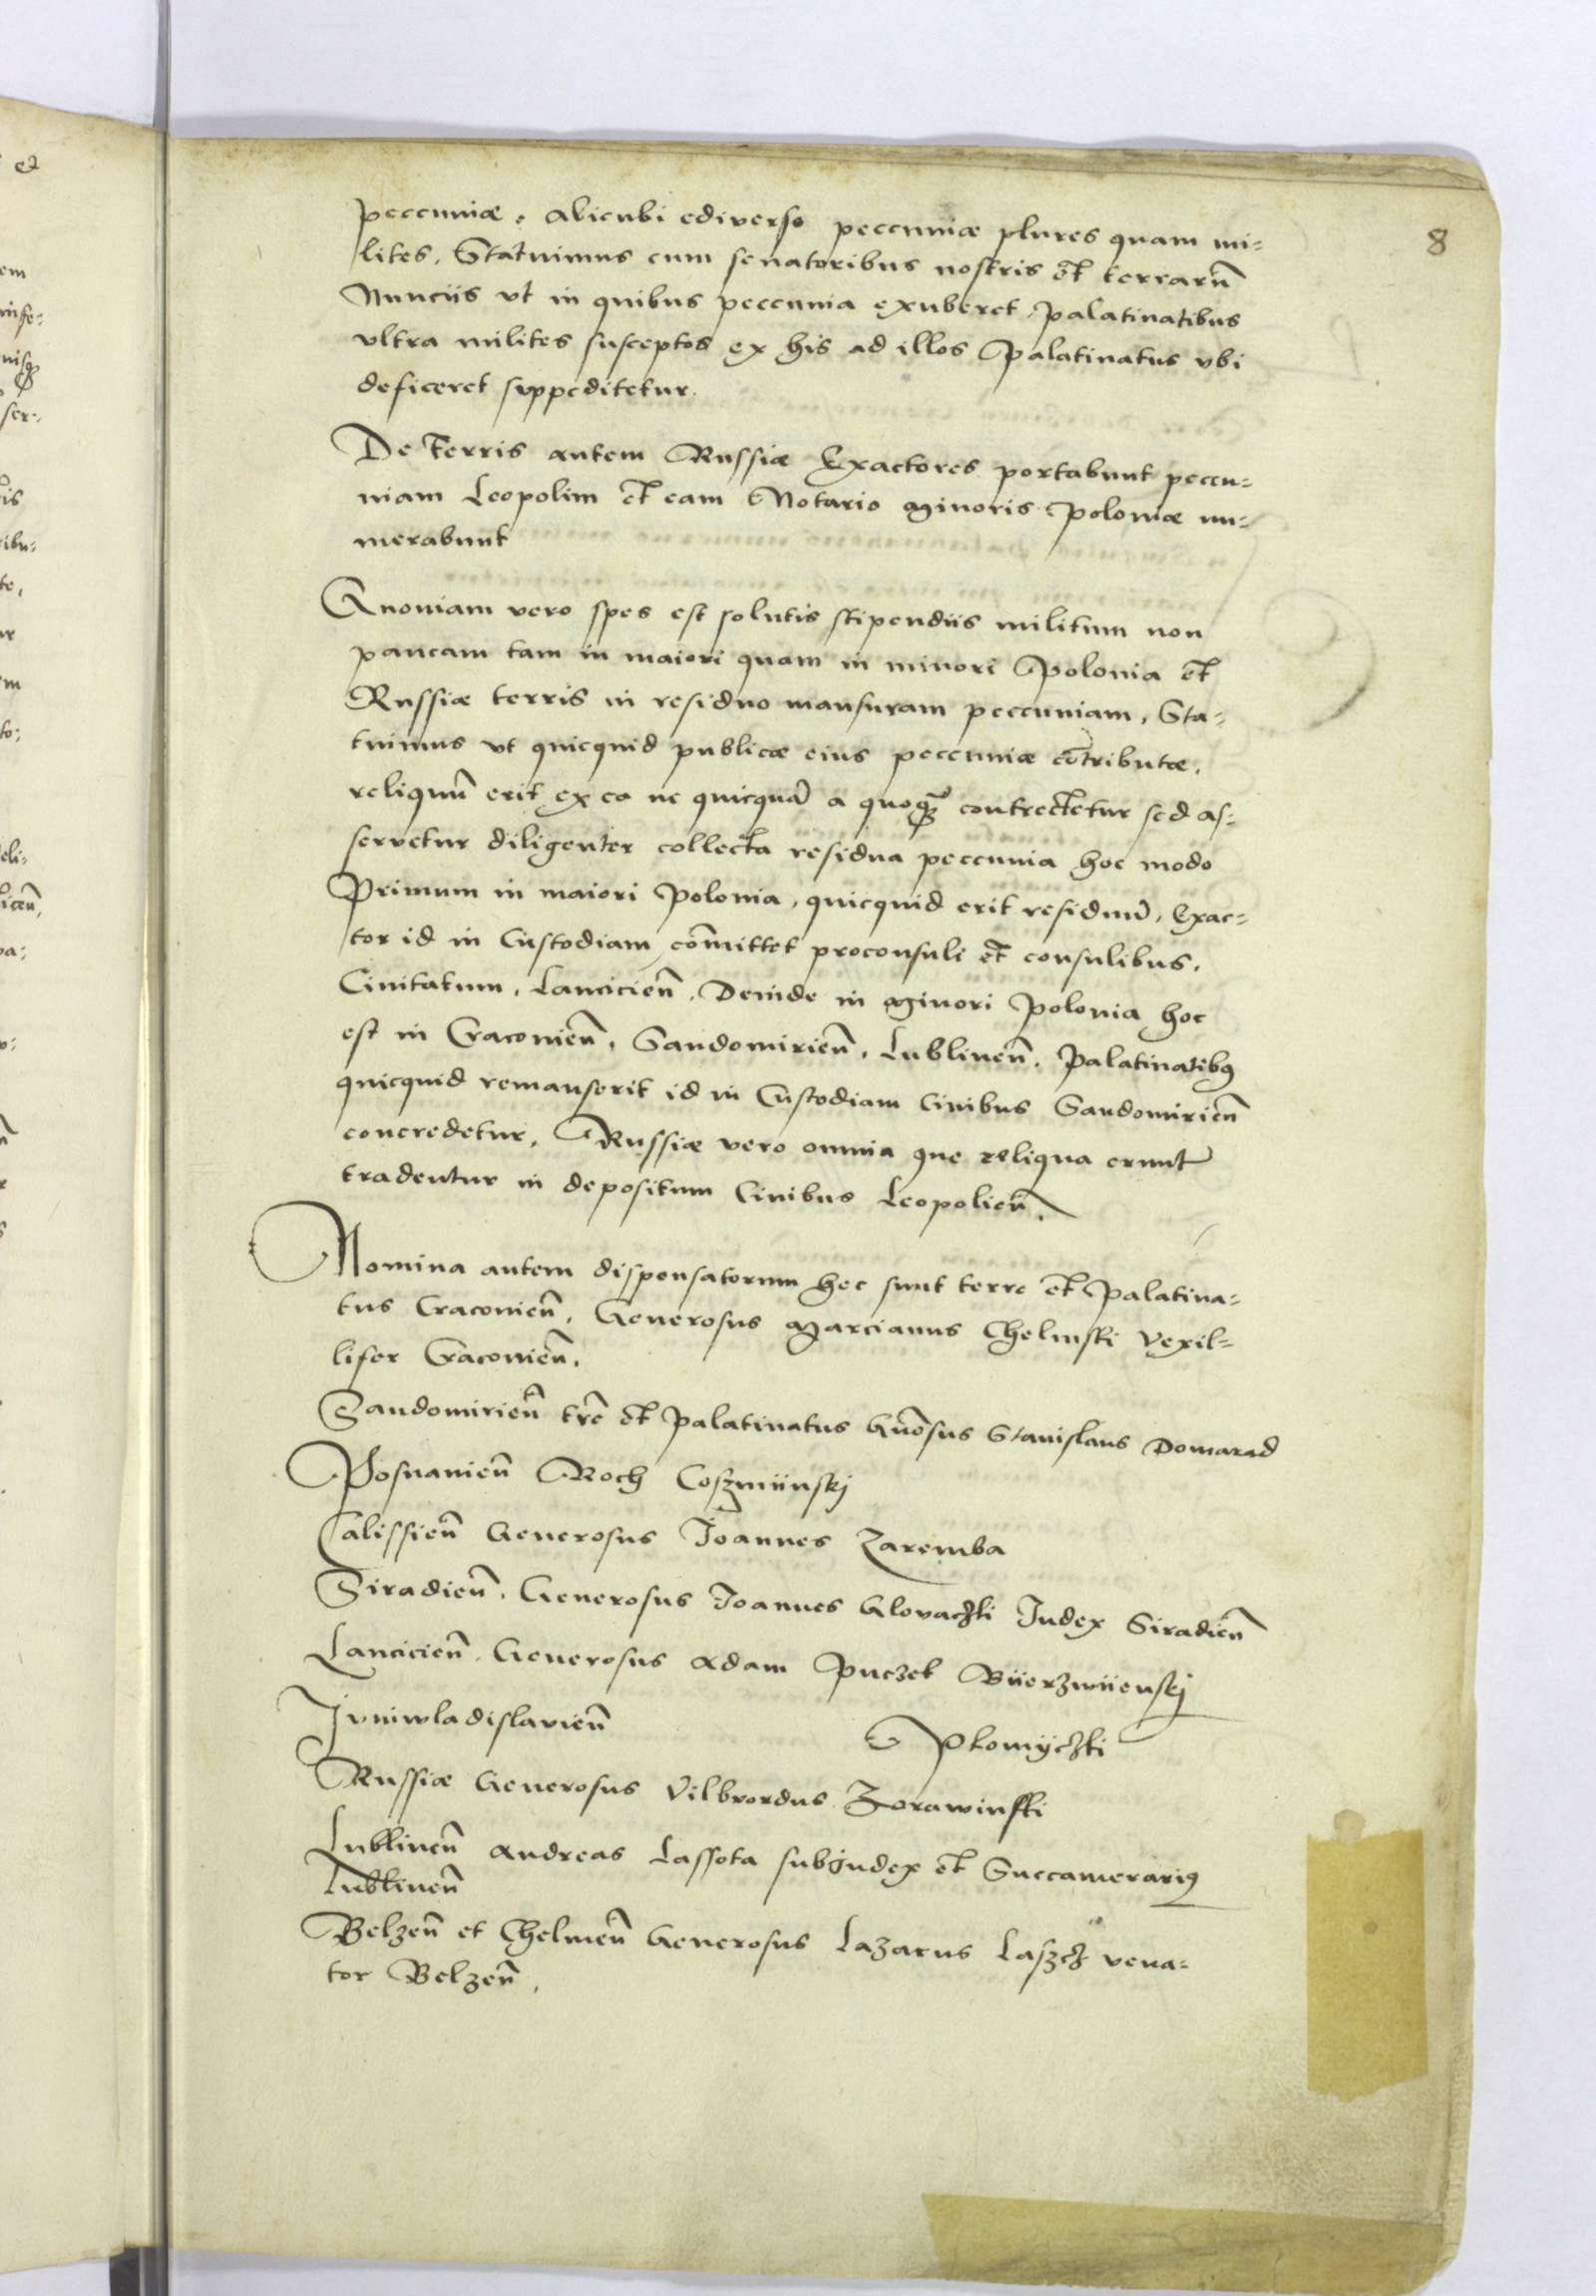 8
peccuniæ, alicubi ediverso peccuniæ plures quam mi=
lites, Statuimus cum senatoribus nostris et terrarũ
Nunciis vt in quibus peccunia exuberet palatinatibus
vltra milites susceptos ex his ad illos Palatinatus vbi
deficeret suppeditetur.
De terris autem Russiæ Exactores portabunt peccu=
niam Leopolim et eam Notario Minoris Poloniæ nu=
merabunt
Quoniam vero spes est solutis stipendiis militum non
paucam tam in maiori quam in minori Polonia et
Russiæ terris in residuo mansuram peccuniam, Sta=
tuimus vt quicquid publicæ eius peccuniæ cõtributæ,
reliquũ erit ex ea ne quicquã a quoqã contrectetur sed as=
servetur diligenter collecta residua peccunia hoc modo
Primum in maiori Polonia, quicquid erit residuũ, Exac=
tor id in Custodiam cõmittet proconsuli et consulibus,
Civitatum, Lancicieñ, Deinde in Minori Polonia hoc
est in Cracovieñ, Sandomirieñ, Lublineñ, Palatinatibꝰ
quicquid remanserit id in Custodiam Civibus Sandomirieñ
concredetur, Russiæ vero omnia que reliqua erunt
tradentur in depositum Civibus Leopolieñ,
Nomina autem dispensatorum hec sunt terre et Palatina=
tus Cracovieñ, Generosus Marcianus Chelmski Vexil=
lifer Cracovieñ,
Sandomirieñ trẽ et Palatinatus Gñosus Stanislaus Domarad
Posnanieñ Roch Coszmiinskj
Calissieñ Generosus Joannes Zaremba
Siradieñ, Generosus Joannes Glovaczki Judex Siradieñ
Lancicieñ, Generosus Adam Puczek Biierzwiienskj
Jvniwladislavieñ Plomÿczki
Russiæ Generosus Vilbrordus Zorawinski
Lublineñ Andreas Lassota subjudex et Succamerariꝰ
Lublineñ
Belzeñ et Chelmeñ Generosus Lazarus Laszcz vena=
tor Belzeñ,